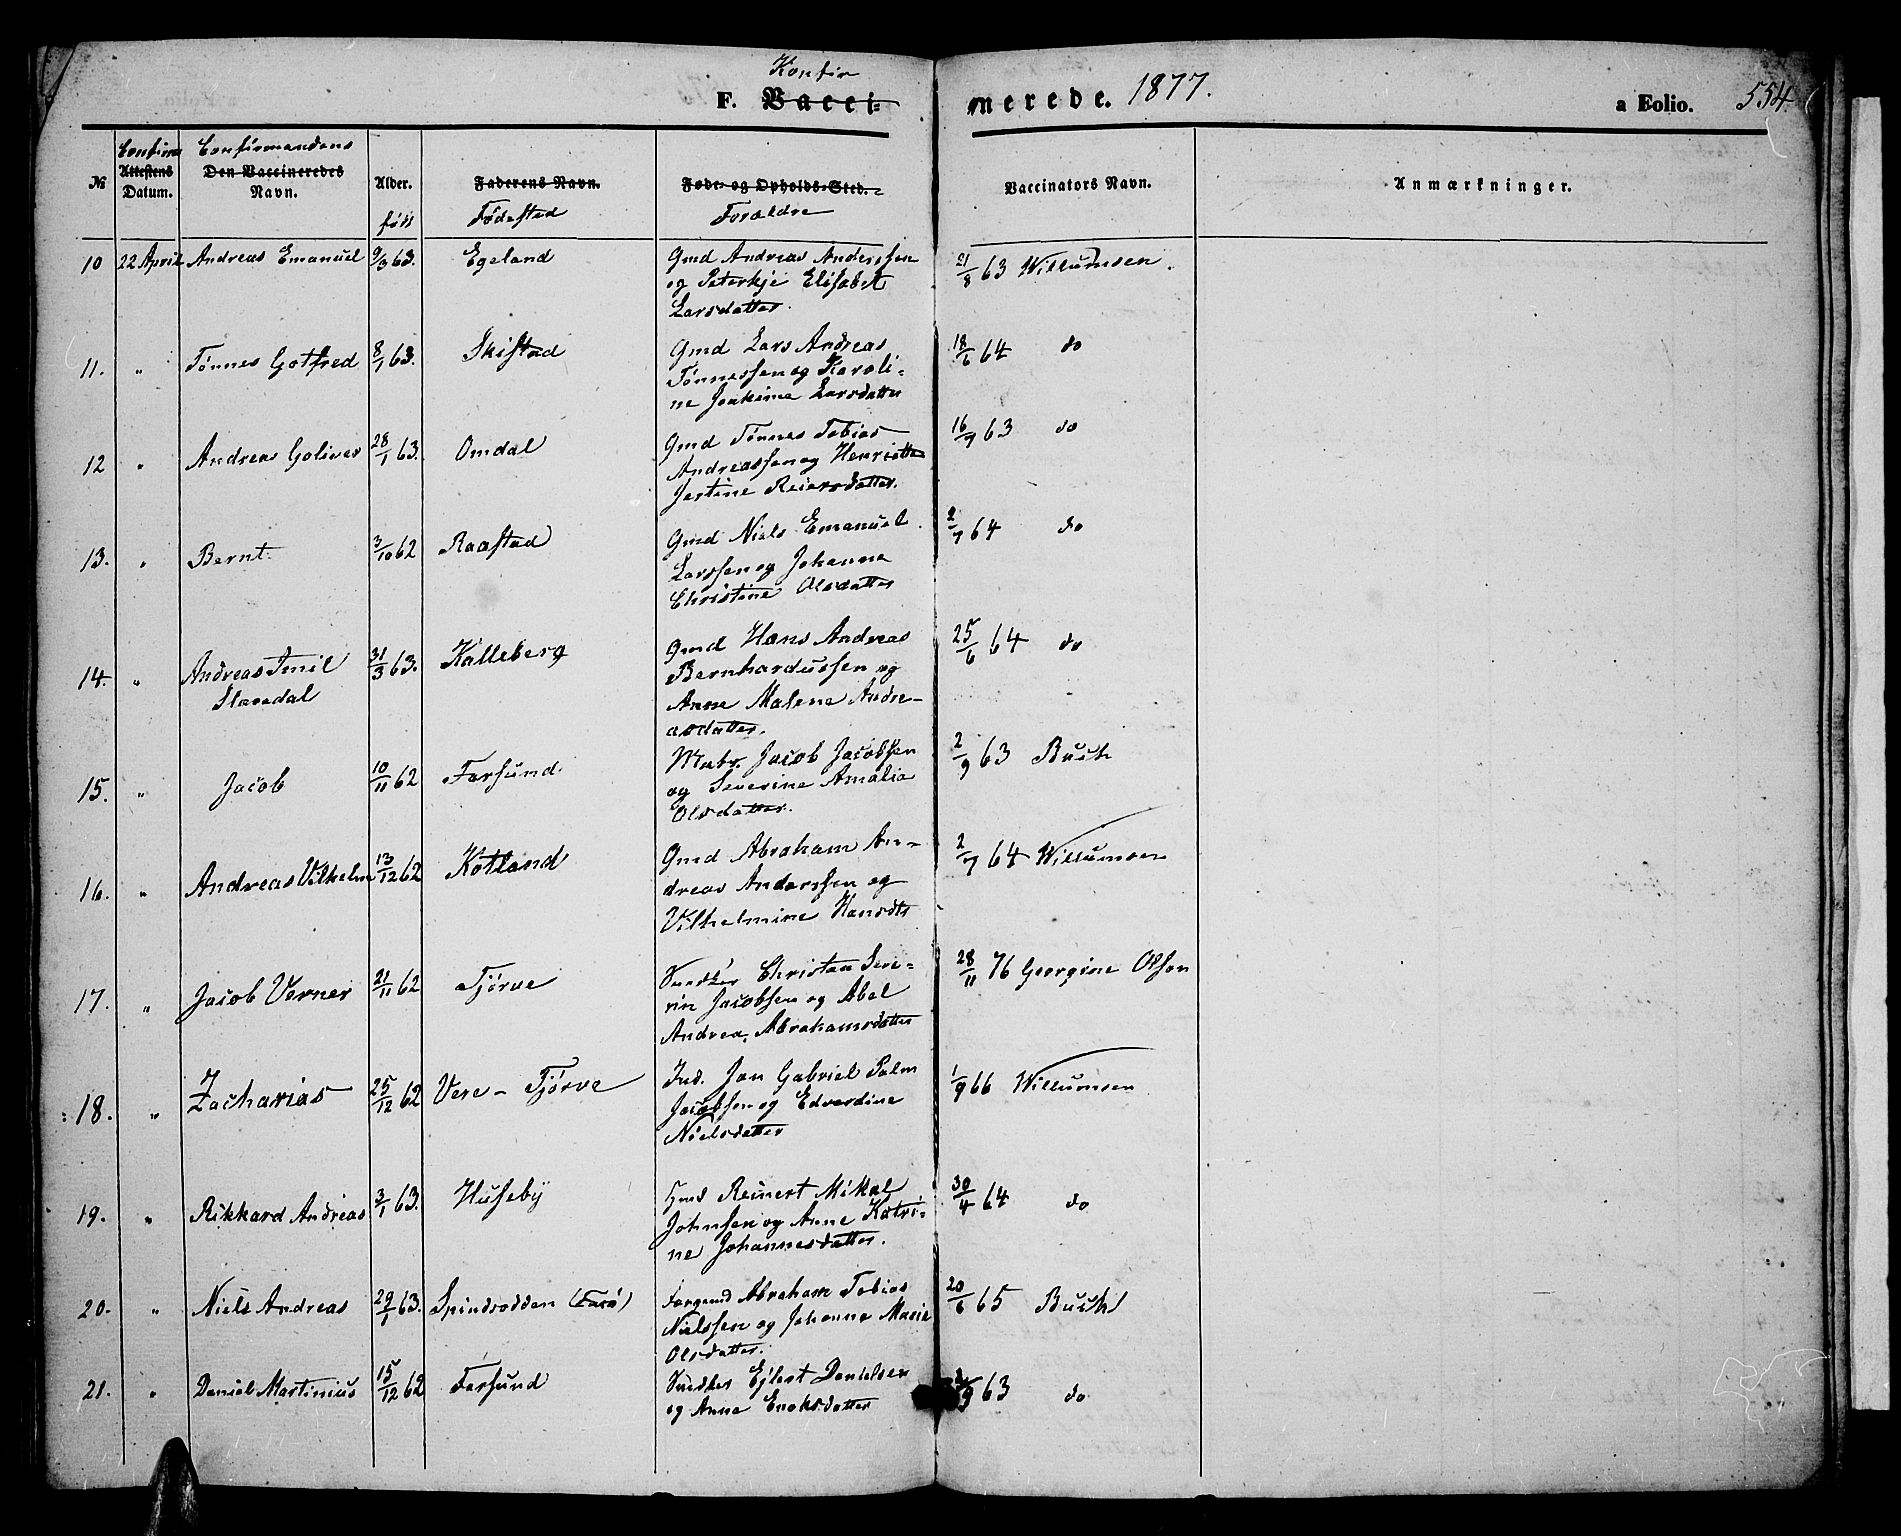 Konfir
F. Vacci- nerede. 1877. a Folio. 554.
Confirm Confirmandens
No. Attestens Datum. Den Vaccineredes Navn. Alder. Faderens Navn. Føde- og Opholds-Sted. Vaccinators Navn. Anmærkninger.
født Fødested Forældre
10 22 April Andreas Emanuel 9/3 63. Egeland Gmd Andreas Anderssen 21/8 63 Willumsen.
og Peterkje Elisabet
Larsdatter.
11. " Tønnes Gotfred 8/1 63. Skistad Gmd Lars Andreas 18/6 64 do
Tønnessen og Karoli-
ne Joakime Larsdatter
12 " Andreas Goliver 28/1 63. Omdal Gmd Tønnes Tobias 16/7 63 do
Andreassen og Henriette
Jertine Reiersdatter.
13. " Bernt. 3/10 62 Raastad Gmd Niels Emanuel 2/7 64 do
Larssen og Johanne
Christine Olsdatter
14. " Andreas Emil 31/3 63. Kalleberg Gmd Hans Andreas 25/6 64 do
Slavedal Bernhardussen og
Anne Malene Andre-
asdatter.
15. " Jacob 10/11 62 Farsund. Matr. Jacob Jacobsen 2/9 63 Buch
og Severine Amalia
Olsdatter.
16. " Andreas Vilhelm 13/12 62 Kotland Gmd Abraham An- 2/7 64 Willumsen
dreas Anderssen og
Vilhelmine Hansdtr
17. " Jacob Verner 21/11 62 Tjørve Snedker Christen Seve- 28/11 76 Georgine Olsen
rin Jacobsen og Abel
Andrea Abrahamsdatter
18. " Zacharias 25/12 62 Vere - Tjørve Ind. Jan Gabriel Palm 1/9 66 Willumsen
Jacobsen og Edvardine
Nielsdatter
19. " Rikkard Andreas 3/1 63. Huseby Gmd Reinert Mikal 30/4 64 do
Johnsen og Anne Katri-
ne Johannesdatter.
20. " Niels Andreas 29/1 63. Spindsodden (Farø) Forgmd Abraham Tobias 20/6 65 Buch
Nielssen og Johanne Marie
Olsdatter.
21. " Daniel Martinius 15/12 62 Farsund Snedker Ejlert Danielsen 2/9 63 do
og Anne Enoksdatter